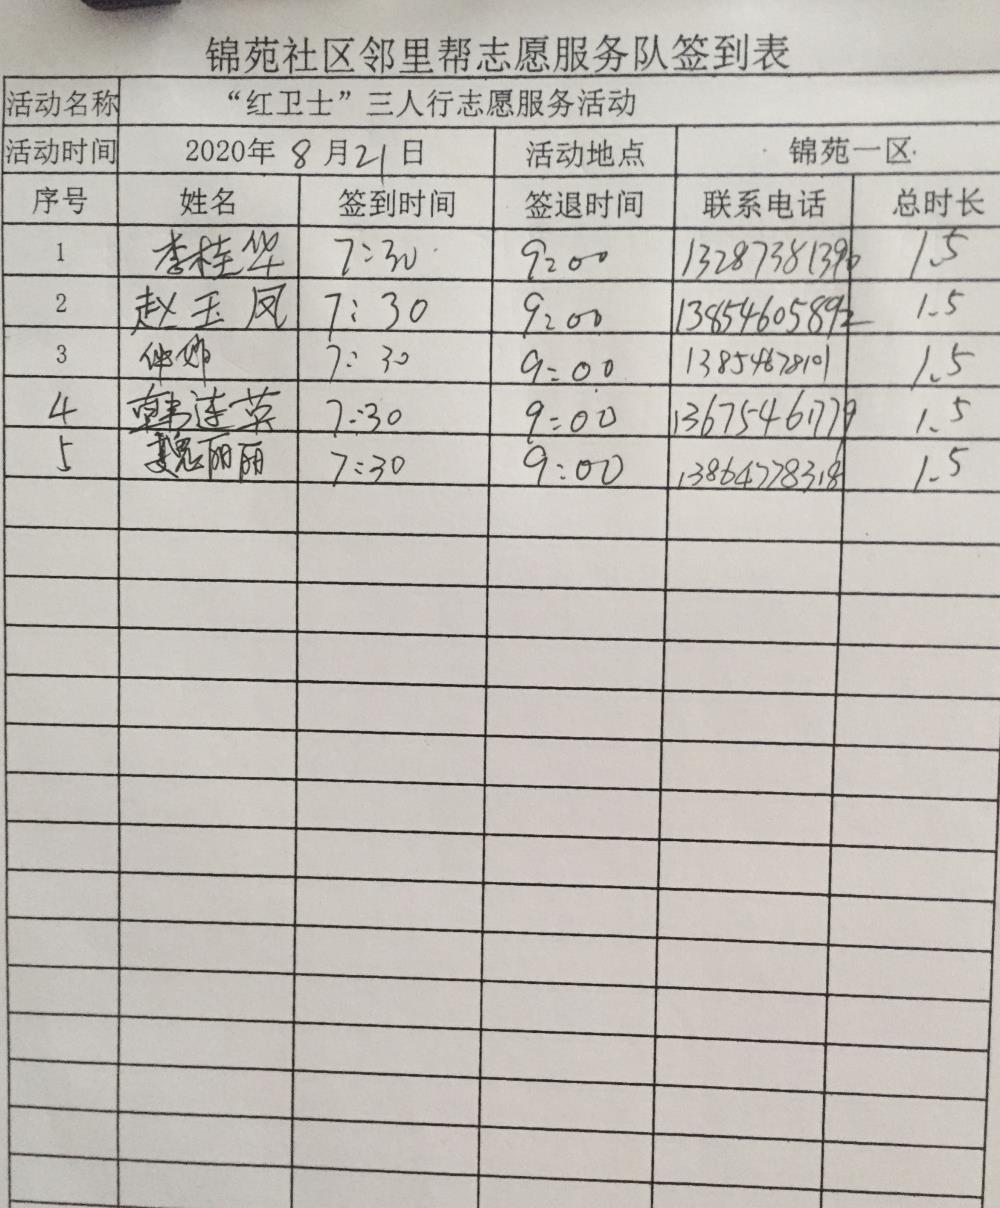 锦苑社区邻里帮志愿服务队签到表
活动名称 “红卫士”三人行志愿服务活动
活动时间 2020年 8月21日 活动地点 锦苑一区
序号 姓名 签到时间 签退时间 联系电话 总时长
1 李桂华 7:30 9:00 13287381390 1.5
2 赵玉凤 7:30 9:00 13854605892 1.5
3 7:30 9:00 13854678101 1.5
4 韩连英 7:30 9:00 13675461779 1.5
5 魏丽丽 7:30 9:00 13864778318 1.5